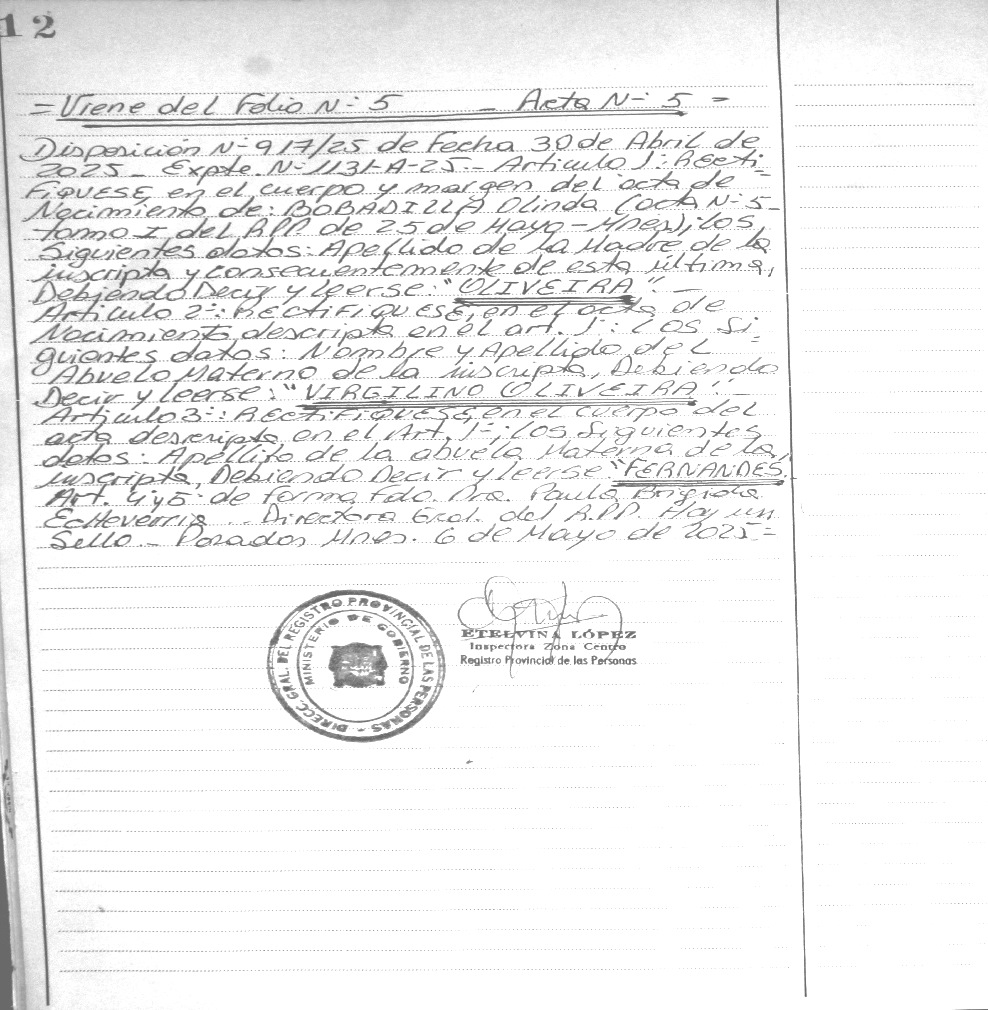 12
= Viene del Folio N-: 5 _ Acta N-: 5 =
Disposición N-: 917/25 de Fecha 30 de Abril de
2025_ Expte. N-: 1131-A-25_ Artículo 1-: RECTI=
FIQUESE, en el cuerpo y margen del acta de
Nacimiento de: BOBADILLA Olinda (acta N-: 5_
tomo I del R.P.P. de 25 de Mayo - Mnes); Los
Siguientes datos: Apellido de la Madre de la
inscripta y consecuentemente de esta última,
Debiendo Decir y leerse: "OLIVEIRA"._
Artículo 2-: RECTIFIQUESE, en el acta de
Nacimiento descripta en el art. 1-: Los Si=
guientes datos: Nombre y Apellido del
Abuelo Materno de la inscripta, Debiendo
Decir y leerse: "VIRGILINO OLIVEIRA"._
Artículo 3-: RECTIFIQUESE, en el cuerpo del
acta descripta en el Art. 1-; Los Siguientes
datos: Apellido de la abuela Materna de la
inscripta, Debiendo Decir y leerse "FERNANDES.
Art. 4y5: de forma Fdo. Dra. Paula Brigida
Echeverria_ Directora Gral. del R.P.P. Hay un
Sello_ Posadas Mnes. 6 de Mayo de 2025=
DIRECC. GRAL. DEL REGISTRO PROVINCIAL DE LAS PERSONAS -
MINISTERIO DE GOBIERNO
ETELVINA LÓPEZ
Inspectora Zona Centro
Registro Provincial de las Personas